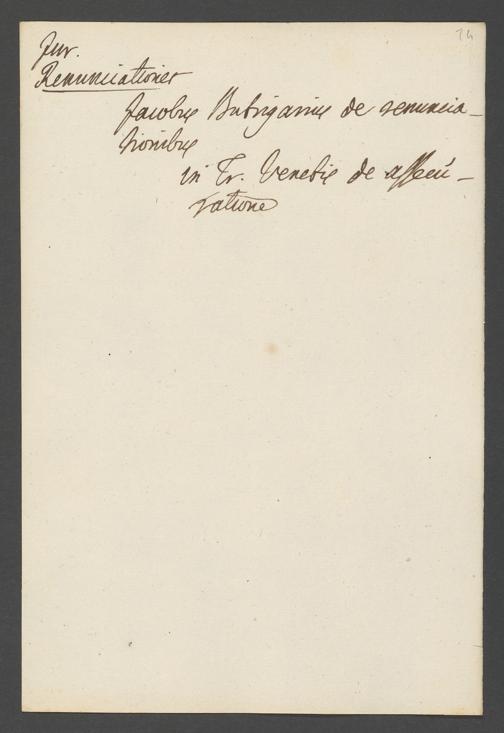 74
Jur.
Renunciationes
Jacobus Butrigarius de renuncia-
tionibus
in Tr. Venetis de assecu-
ratione